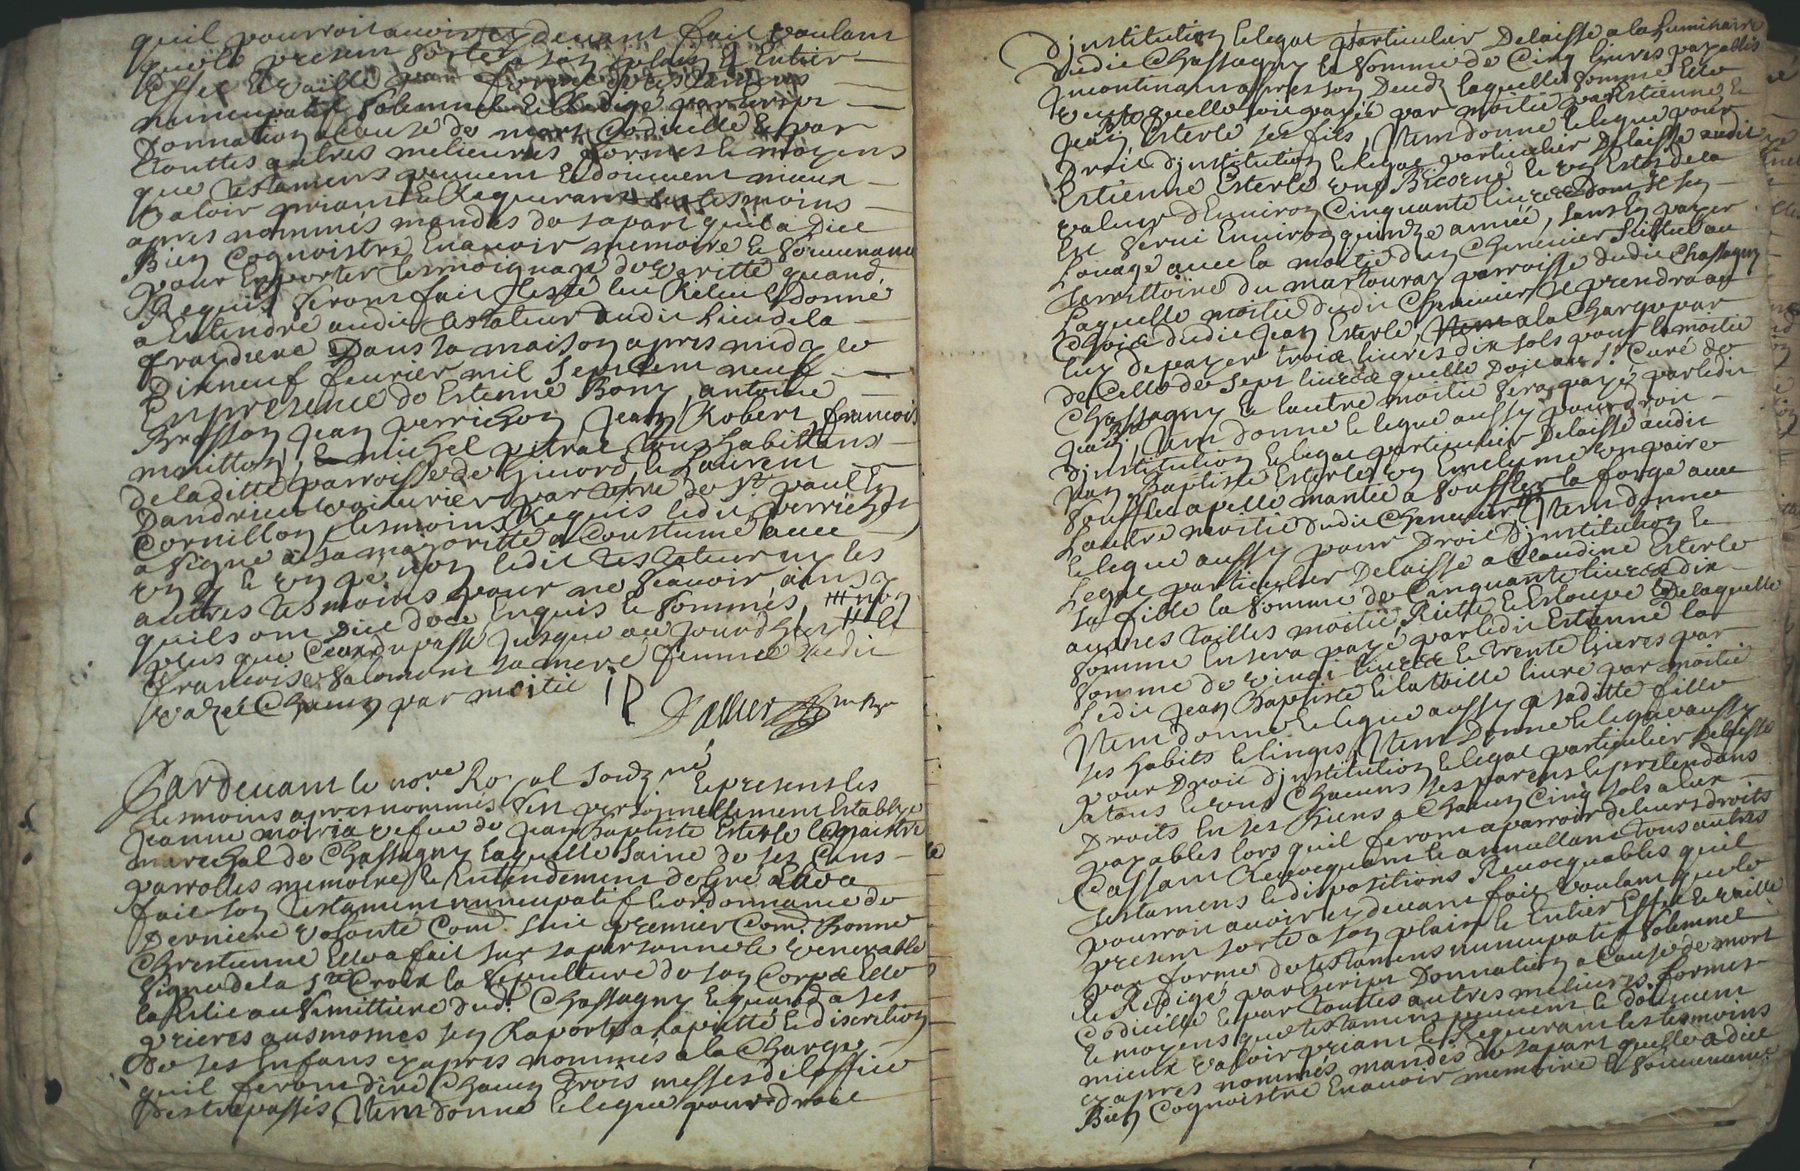 quil pourroit avoir cy devant fait voulant
que le present sorte a son plain & Entier
Effet & vaille par forme de testamens
nuncupatif solemnel & Redigé par script
Donnation a cause de mort Codicille & par
touttes autres melieures formes & moyens
que testamens peuvent & doivent mieux
valoir priant & Requerant les tesmoins
apres nommés mandés de sa part quil a Dict
Bien Cognoistre En avoir memoire & souvenance
pour En porter tesmoignage de veritté quand
Requis seront fait leste leu Releu & Donné
a Entendre audit testateur audit Lieu de la
fraydiere Dans sa maison apres midy le
Dixneuf feuvrier mil sept cent neuf
En presence de Estienne Bony, antoine
Brosson Jean perrichon, Jean Robert, francois
moitton, & michel peiral tous habittans
de laditte parroisse de Givord, & Laurent
Dandrieu voiturier par terre de St paul En
Cornillon tesmoins Requis ledit perrichon
a signé a sa majoritté a Coustume avec
Luy & non ledit testateur ny les
autres tesmoins pour ne scavoir ainsy
quils ont Dict de ce Enquis & sommés,
plus que Ceux du passé Jusque au jourdhuy &
francoise salomont sa mere femme dudit
par moitié
Dallier
Pardevant le nore Royal soubz né & presents les
tesmoins apres nommés sest personnellement Establye
Jeanne moiria vefue de Jean Baptiste Esterle Maistre
marechal de Chassagny laquelle saine de ses sens
parrolles memoires & Entendement de gré Elle a
fait son testament nuncupatif & ordonnance de
Derniere volonté Comd. suit premier Comd. Bonne
Chrestienne Elle a fait sur sa personne le venerable
signe de la ste Croix la sepulture de son Corps Elle
la Eslie au simittiere dud. Chassagny & quand a ses
prieres ausmosnes sen Raporte a la pietté & discretion
de ses Enfans cy apres nommés a la Charge
quil feront dire Chacun trois messes de loffice
des trepassés, Item donne & legue pour droit
Dinstitution & legat particulier Delaisse a la Luminaire
dudit Chassagny la somme de Cinq livres payables
Incontinant apres son Deuds laquelle somme Elle
veut quelle soit payée par moitié par Estienne &
Jean Esterle ses fils, Item donne & legue pour
Droit Dinstitution & legat particulier Delaisse audit
Estienne Esterle une Bicorne & un Estoz de la
valeur Denviron Cinquante livres dont Il sen
Est servi Environ quinze année, sans En payer
Louage avec la moitié dun Chenevier scitué au
territtoire du martouray parroisse dudit Chassagny
Laquelle moitié dudit Chenevier Il prendra au
Choix dudit Jean Esterle, Item a la Charge par
luy de payer trois livres dix sols pour la moitié
de Celle de sept livres quelle Doit au Sr Curé de
Chassagny & lautre moitié sera payé par ledit
Jean, Item donne & legue aussy pour droit
Dinstitution & legat particulier Delaisse audit
Jean Baptiste Esterle un Enclume une paire
soufflet apellé mantié a souffler la forge avec
Lautre moitié dudit Chenevier, Item donne
& legue aussy pour Droit Dinstitution &
Legat particulier Delaisse a Claudine Esterle
sa fille la somme de Cinquante livres dix
aulnes toilles moitié Ritte & Estoupe Delaquelle
somme En sera payé par ledit Estienne la
somme de vingt livres & trente livres par
Ledit Jean Baptiste & la toille livré par moitié
Item donne & legue aussy a saditte fille
ses habits & linges, Item Donne & legue aussy
pour Droit Dinstitution & legat particulier Delaisse
a tous & un Chacuns ses parens & pretendans
Droits En ses Biens a Chacun Cinq sols a Eux
payables lors quil feront aparroir de leurs droits
Cassant Revocquant & annullant tous autres
testamens & dispositions Revocquables quil
pourroit avoir cy devant fait voulant que le
present sorte a son plain & Entier Effet & vaille
par forme de testamens nuncupatif solemnel
& Redigé par script Donnation a Cause de mort
Codicille & par touttes autres melieures formes
& moyens que testamens peuvent & doivent
mieux valoir priant & Requerant les tesmoins
cy apres nommés mandés de sa part quelle a dict
Bien Cognoistre En avoir memoire & souvenance